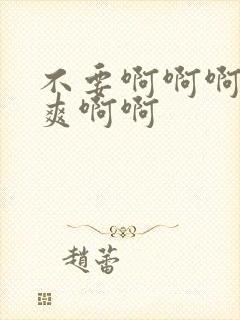 不要啊啊啊
爽啊啊
趙蕾